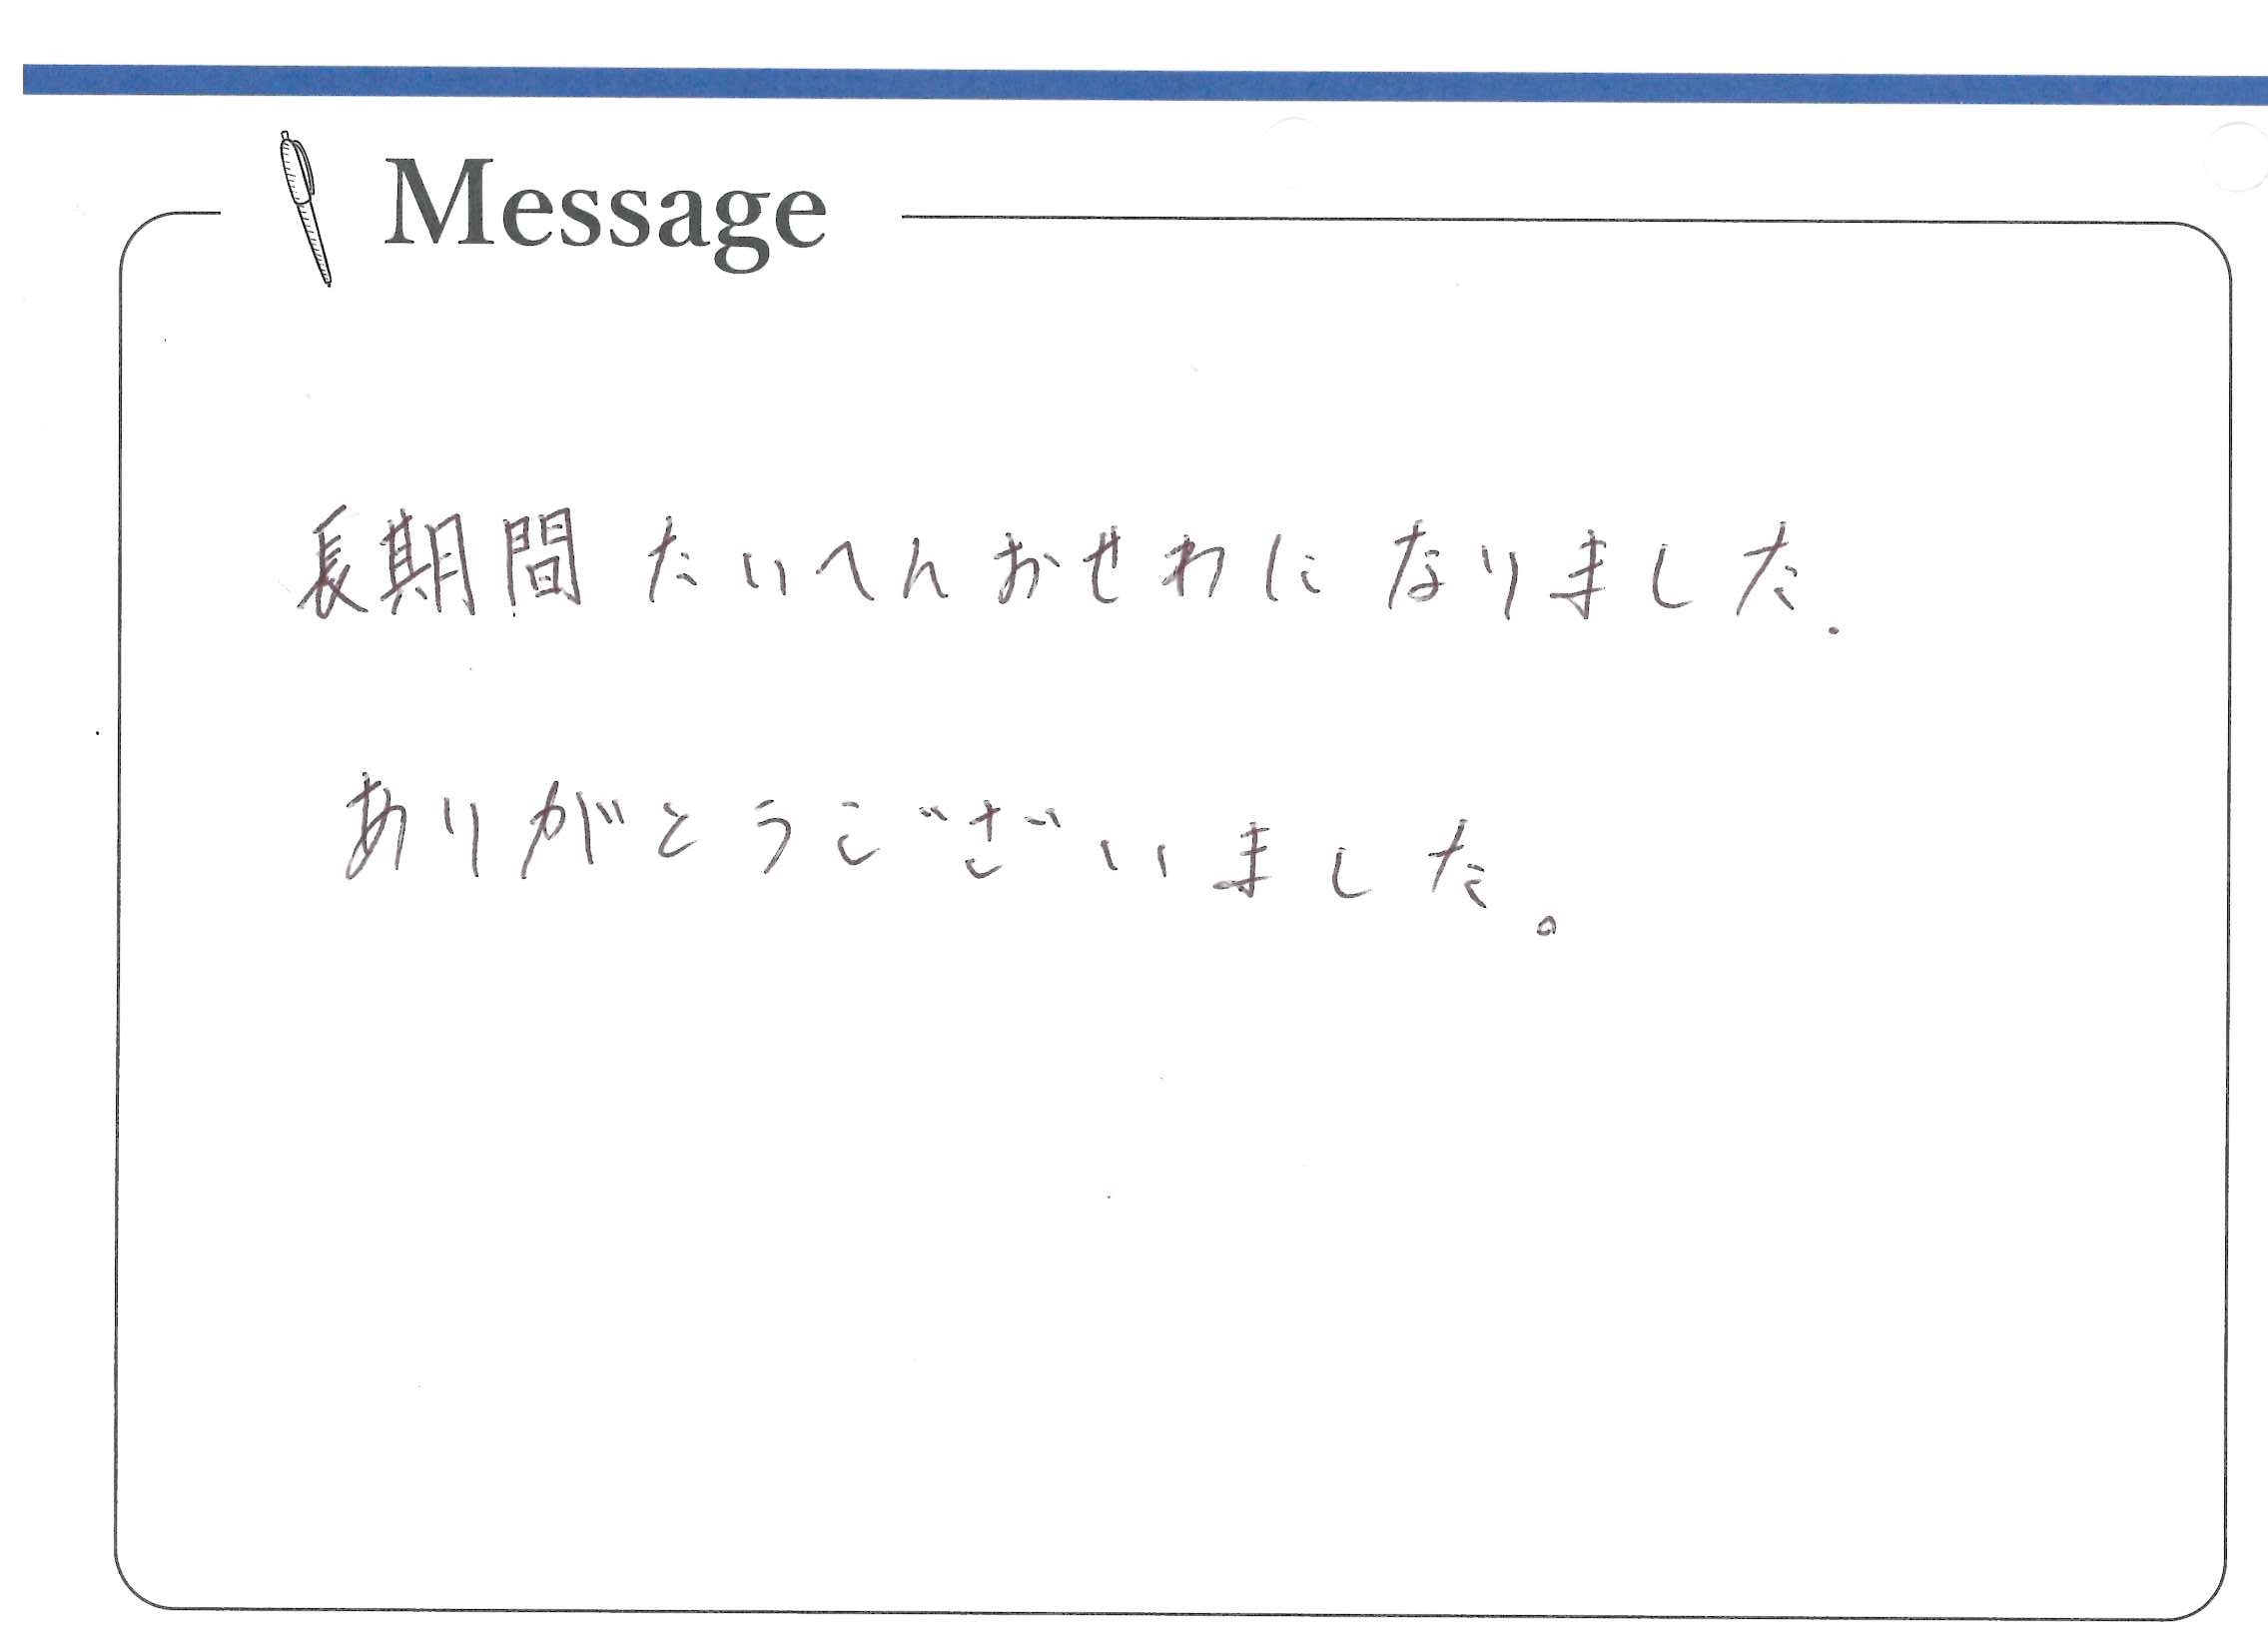 Message
長期間たいへんおせわになりました.
ありがとうございました。